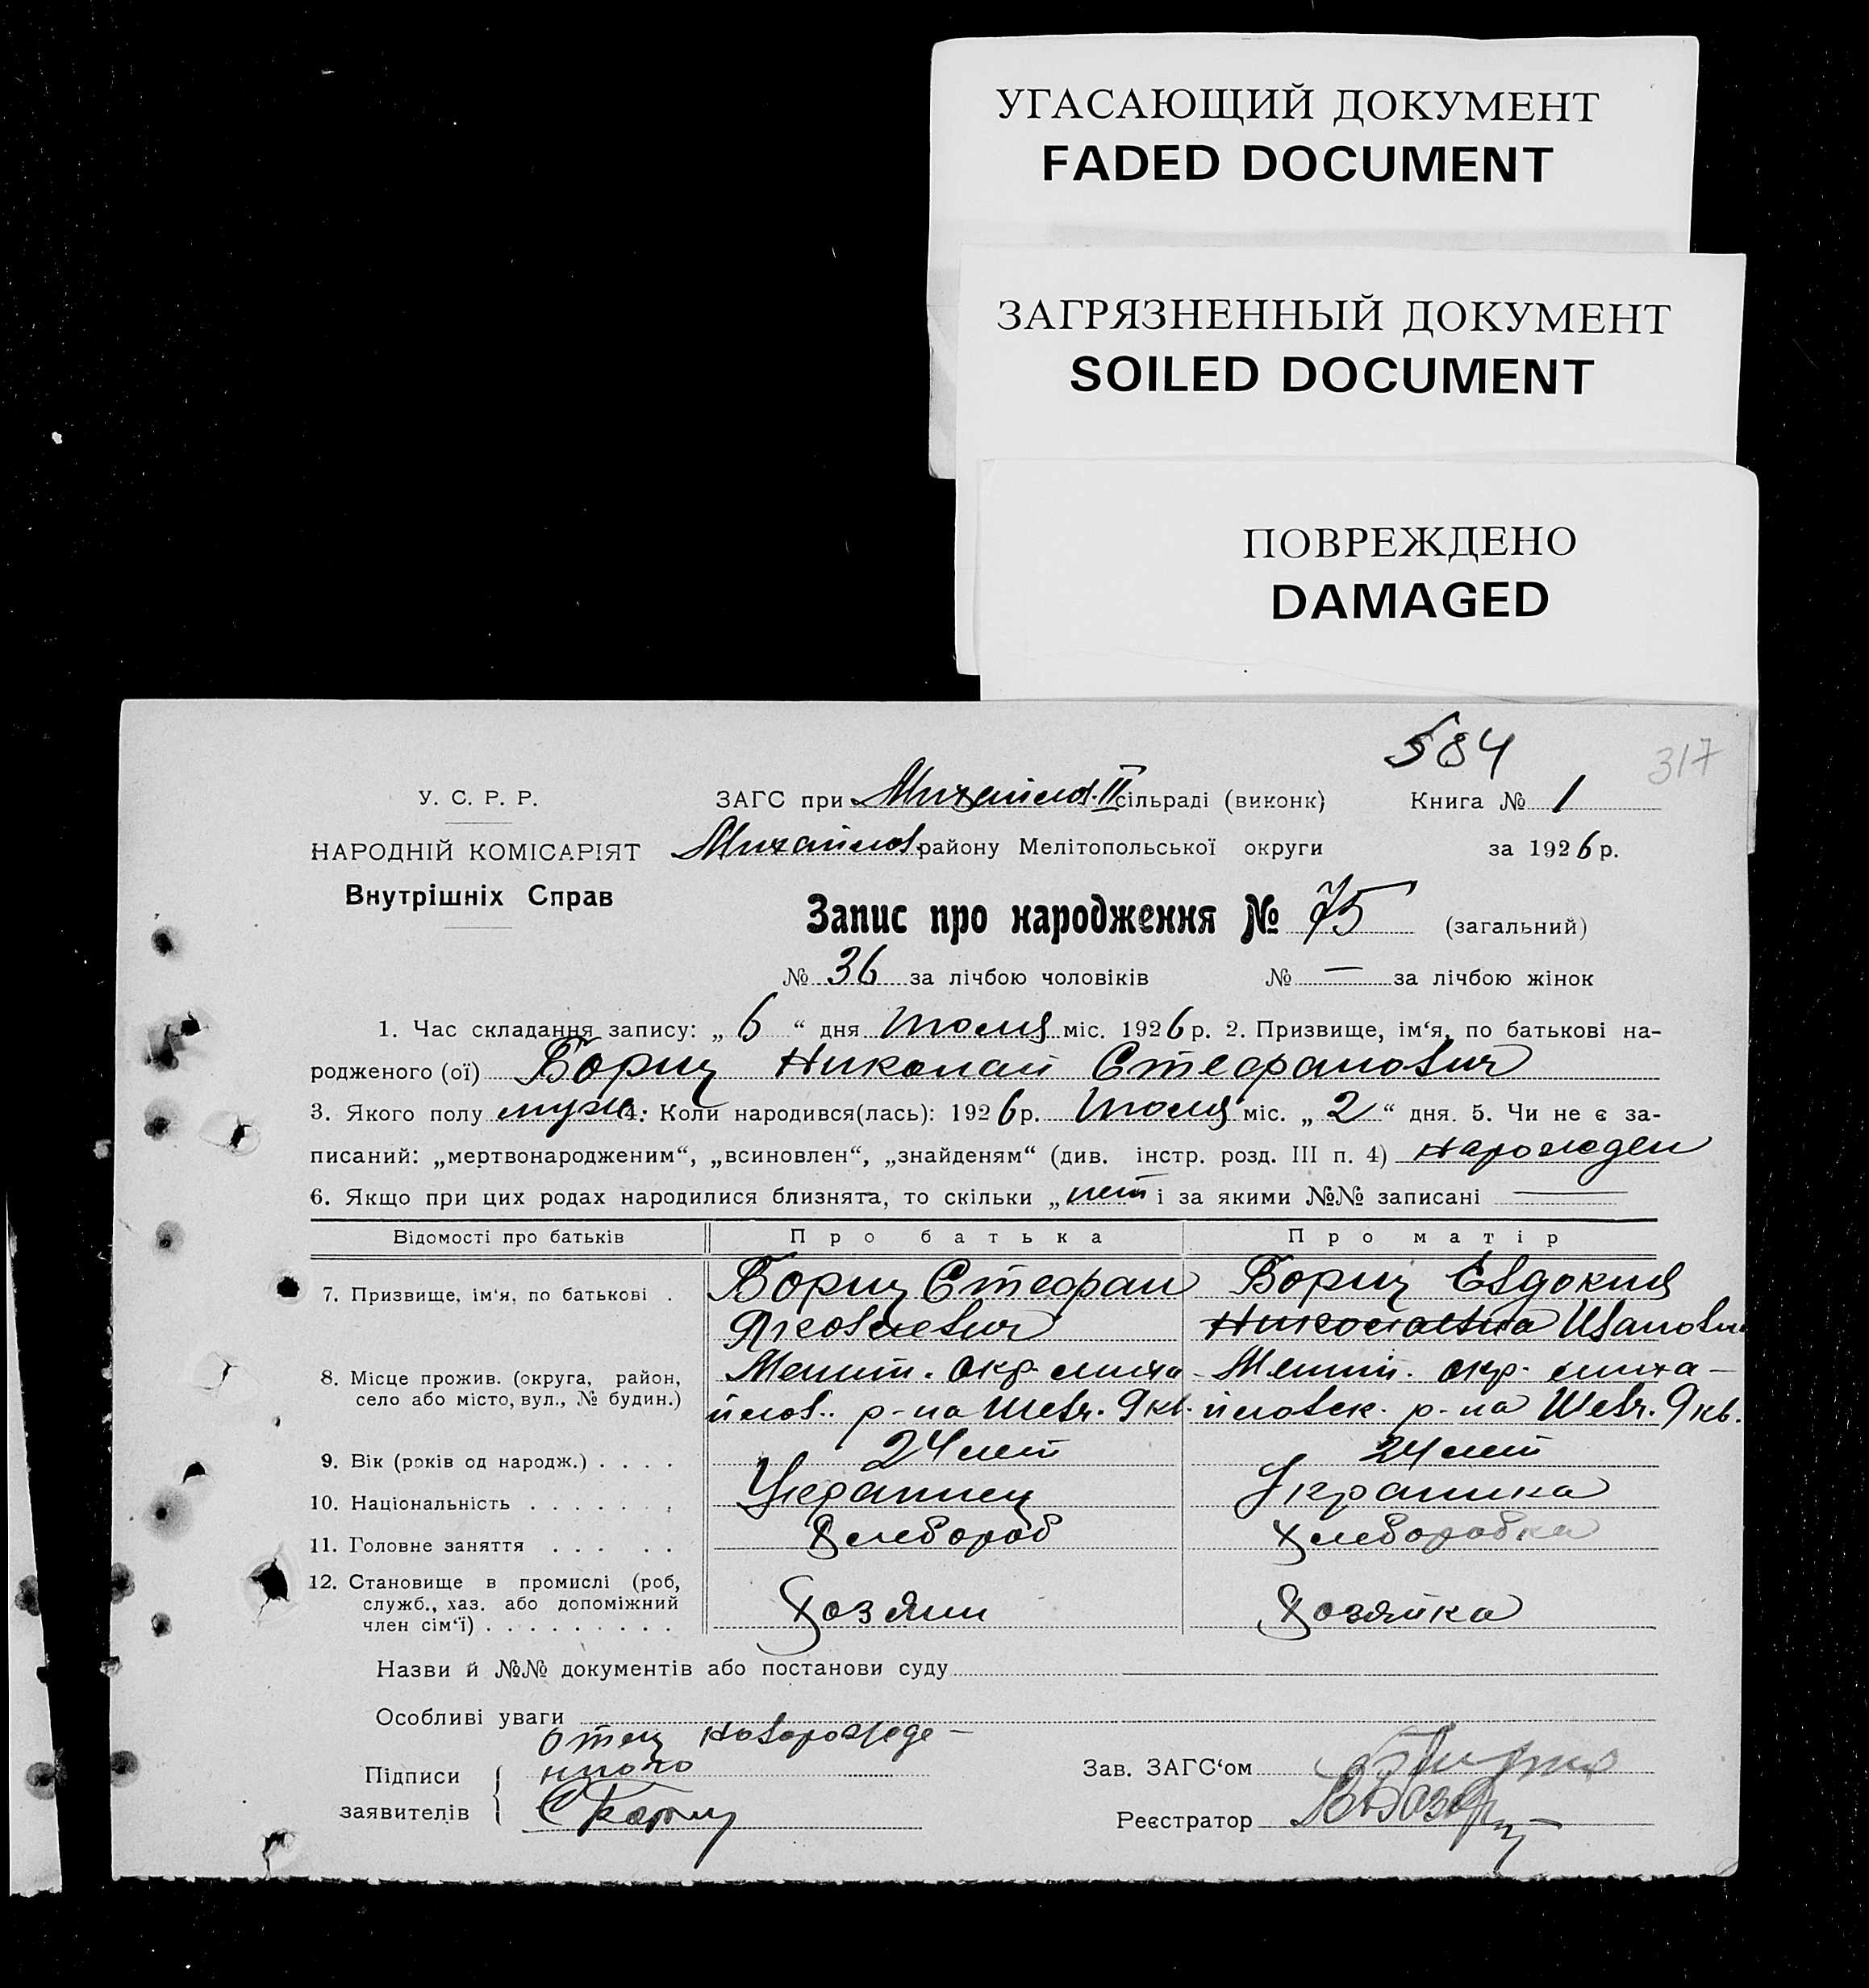 УГАСАЮЩИЙ ДОКУМЕНТ
FADED DOCUMENT
ЗАГРЯЗНЕННЫЙ ДОКУМЕНТ
SOILED DOCUMENT
ПОВРЕЖДЕНО
DAMAGED
584
317
У. С. Р. Р.
ЗАГС при Михайлов. II сільраді (виконк) Книга № 1
НАРОДНІЙ КОМІСАРІЯТ Михайлов. району Мелітопольської округи за 1926 р.
Внутрішніх Справ
Запис про народження № 75 (загальний)
№ 36 за лічбою чоловіків № — за лічбою жінок
1. Час складання запису: „ 6 “ дня Июля міс. 1926 р. 2. Призвище, ім‘я, по батькові на-
родженого (ої) Борищ Николай Стефанович
3. Якого полу муж. 4. Коли народився(лась): 1926 р. Июля міс. „ 2 “ дня. 5. Чи не є за-
писаний: „мертвонародженим“, „всиновлен“, „знайденям“ (див. інстр. розд. III п. 4) нарожден
6. Якщо при цих родах народилися близнята, то скільки „ нет і за якими №№ записані —
Відомості про батьків Про батька Про матір
7. Призвище, ім‘я, по батькові . Борищ Стефан Борищ Евдокия
Яковлевич Николаевна Иванов
8. Місце прожив. (округа, район, Мелит. окр. миха- Мелит. окр. миха-
село або місто, вул., № будин.) йлов. р-на Шевч. 9 кв. йловск. р-на Шевч. 9 кв.
9. Вік (років од народж.) . . . . 24 лет 24 лет
10. Національність . . . . . . . Украинец Украинка
11. Головне заняття . . . . . Хлебороб Хлеборобка
12. Становище в промислі (роб,
служб., хаз. або допоміжний Хозяин Хозяйка
член сім‘ї) . . . . . . . . .
Назви й №№ документів або постанови суду
Особливі уваги
Отец новорожде-
Підписи нного Зав. ЗАГС‘ом
заявителів Реєстратор